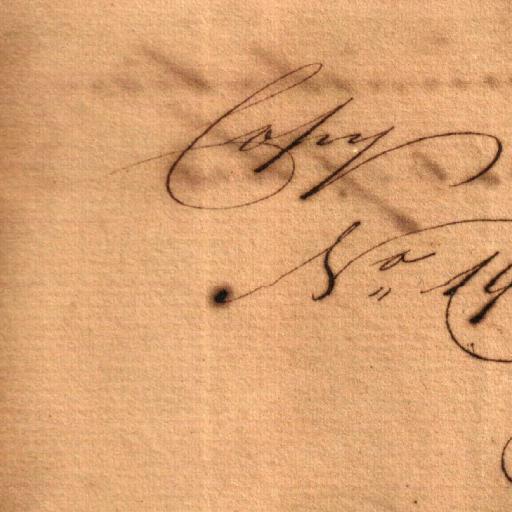 Copy
No 19